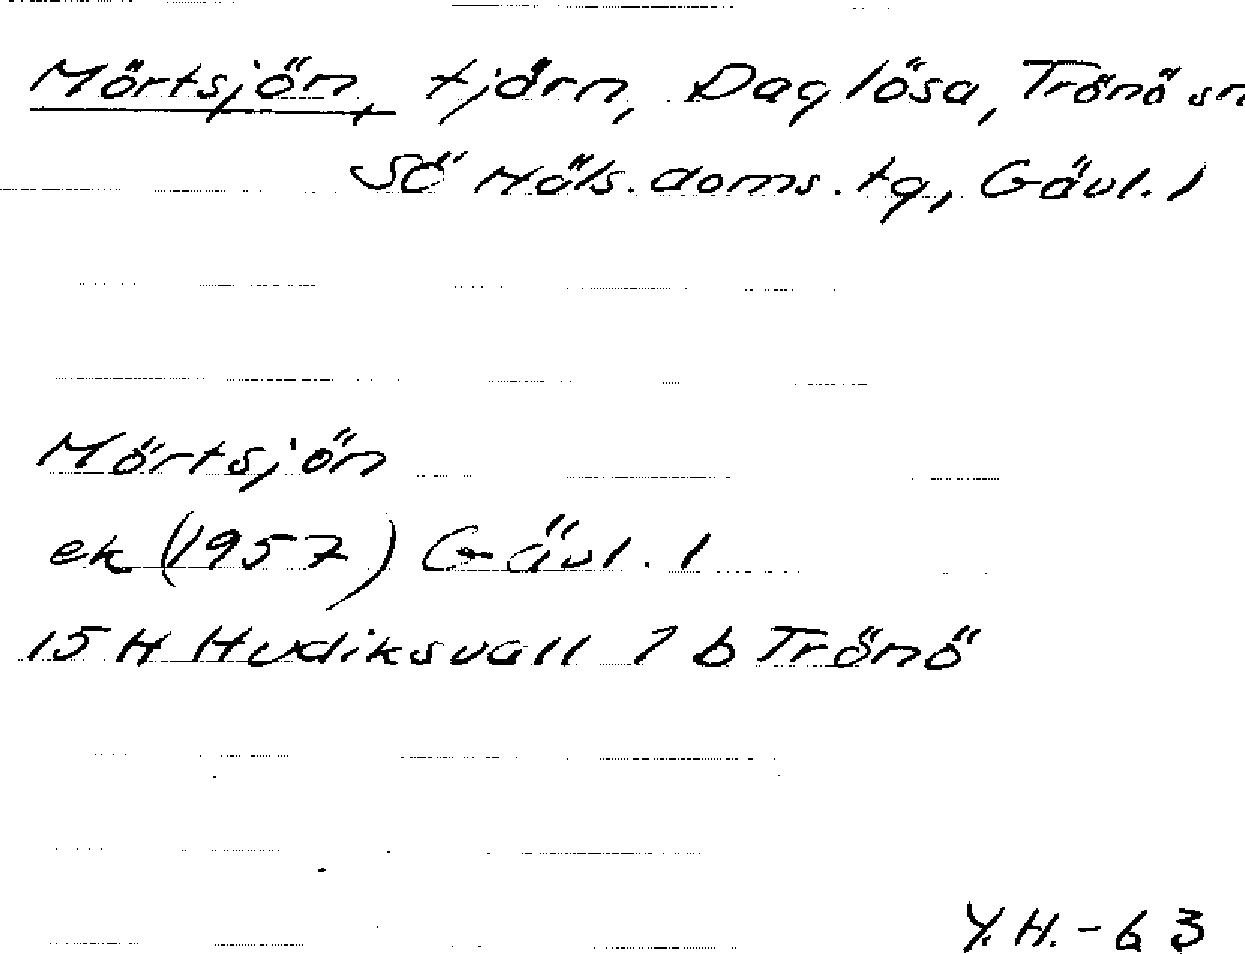 Mörtsjön, tjärn, Daglösa, Trönö sn
Sö Häls. doms. tg, Gävl. l
Mörtsjön
ek (1957) Gävl. l
15 H Hudiksvall 1 b Trönö
Y.H.-63